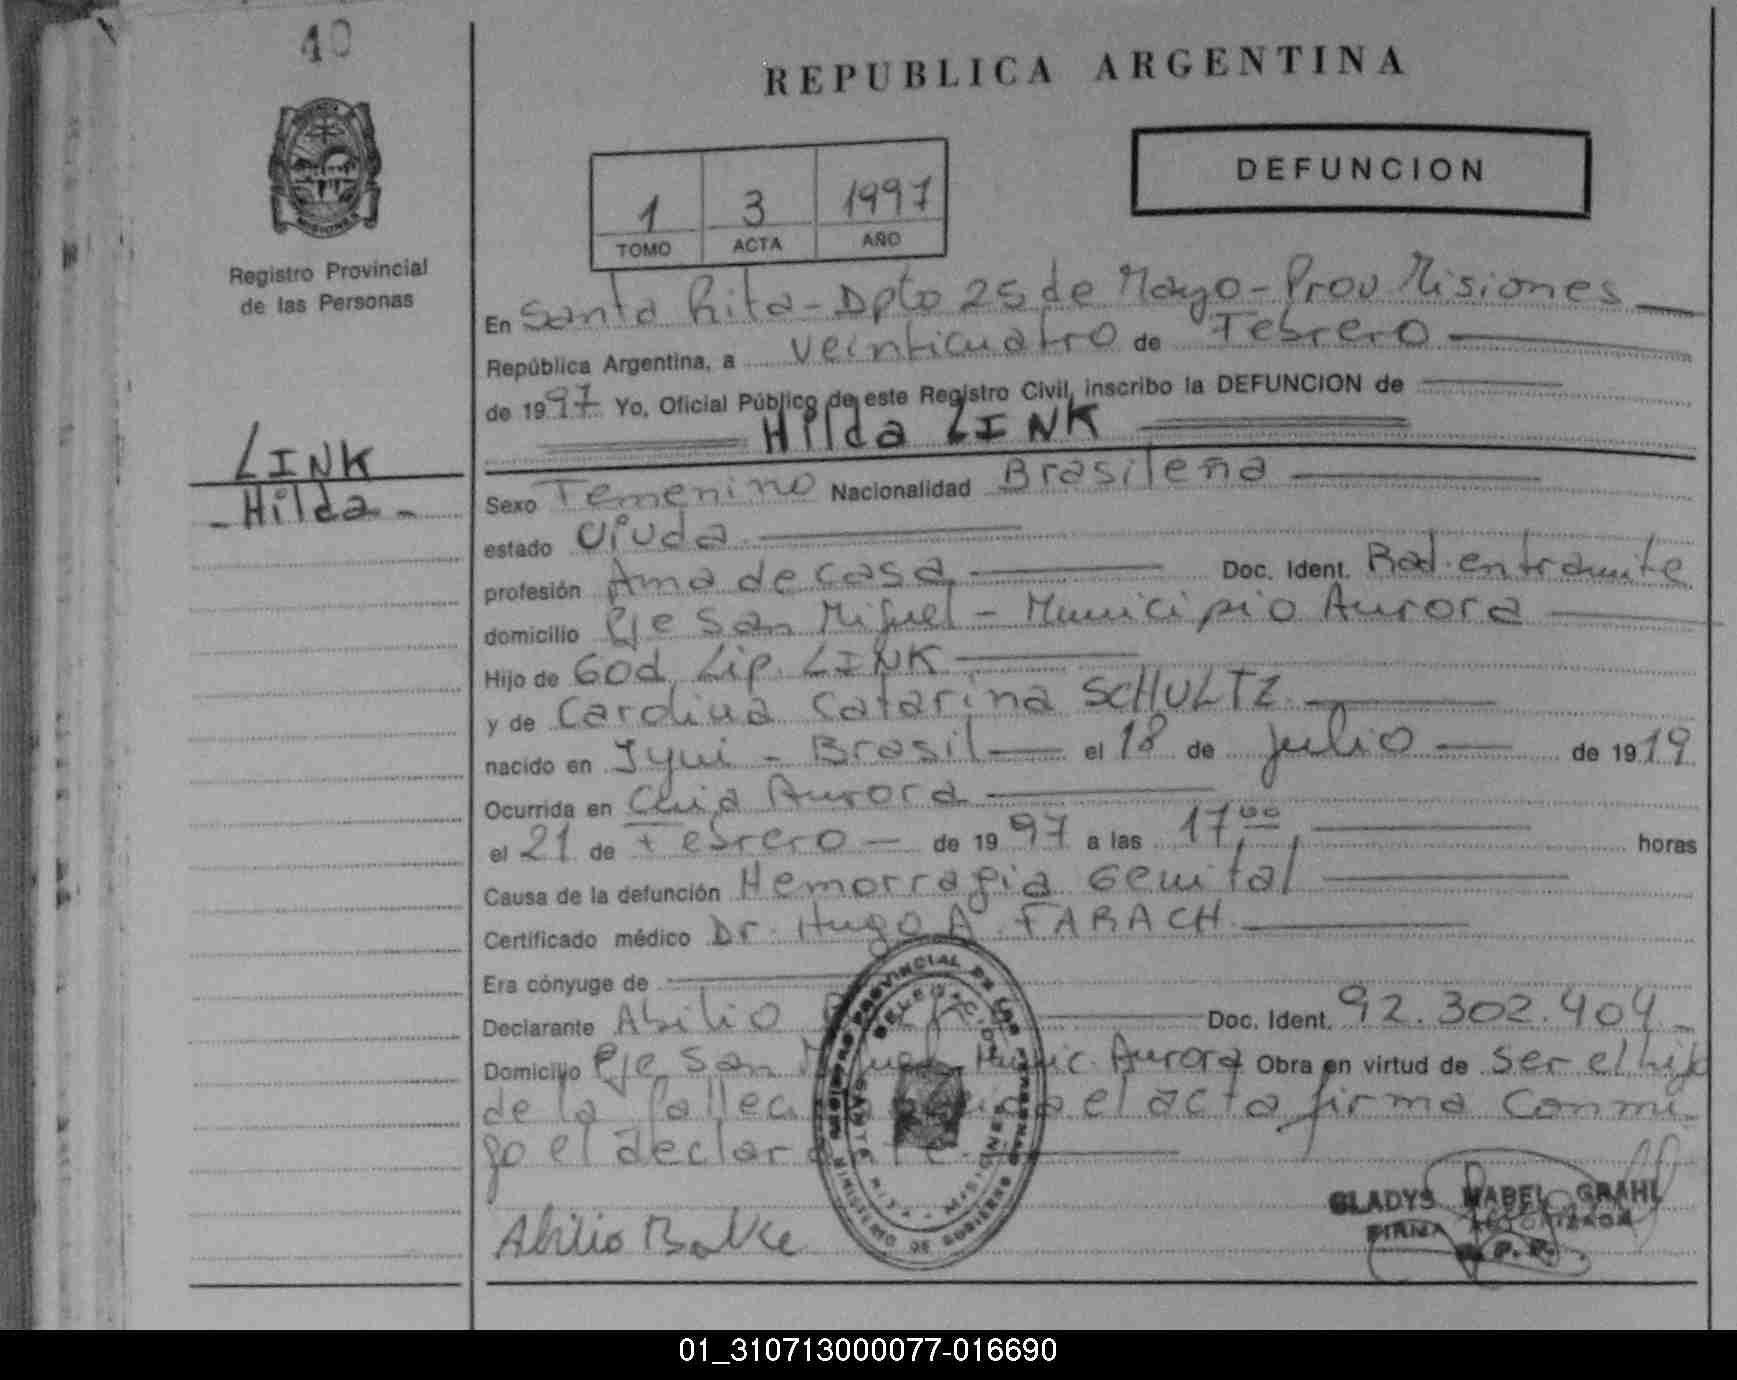 40
REPUBLICA ARGENTINA
DEFUNCION
1 3 1997
TOMO ACTA AÑO
Registro Provincial
de las Personas
En Santa Rita - Dpto 25 de Mayo - Prov Misiones
República Argentina, a veinticuatro de Febrero
de 1997 Yo, Oficial Público de este Registro Civil, inscribo la DEFUNCION de
Hilda LINK
LINK
- Hilda -
Sexo Femenino Nacionalidad Brasileña
estado Viuda
profesión Ama de casa Doc. Ident. Rad. en tramite
domicilio Pje San Miguel - Municipio Aurora
Hijo de God. Lip. LINK
y de Carolina Catarina SCHULTZ
nacido en Iyui - Brasil el 18 de Julio de 1919
Ocurrida en Aurora
el 21 de Febrero de 1997 a las 17,00 horas
Causa de la defunción Hemorragia Genital
Certificado médico Dr. Hugo A. FARACH
Era cónyuge de
Declarante Abilio Doc. Ident. 92.302.404
Domicilio Pje San Miguel Munic. Aurora Obra en virtud de ser el hijo
de la el acta firma conmi-
go el declarante
Abilio Balke
REGISTRO PROVINCIAL DE LAS PERSONAS
MINISTERIO DE GOBIERNO
MISIONES
GLADYS MABEL GRAHL
FIRMA AUTORIZADA
R. P. P.
01_310713000077-016690